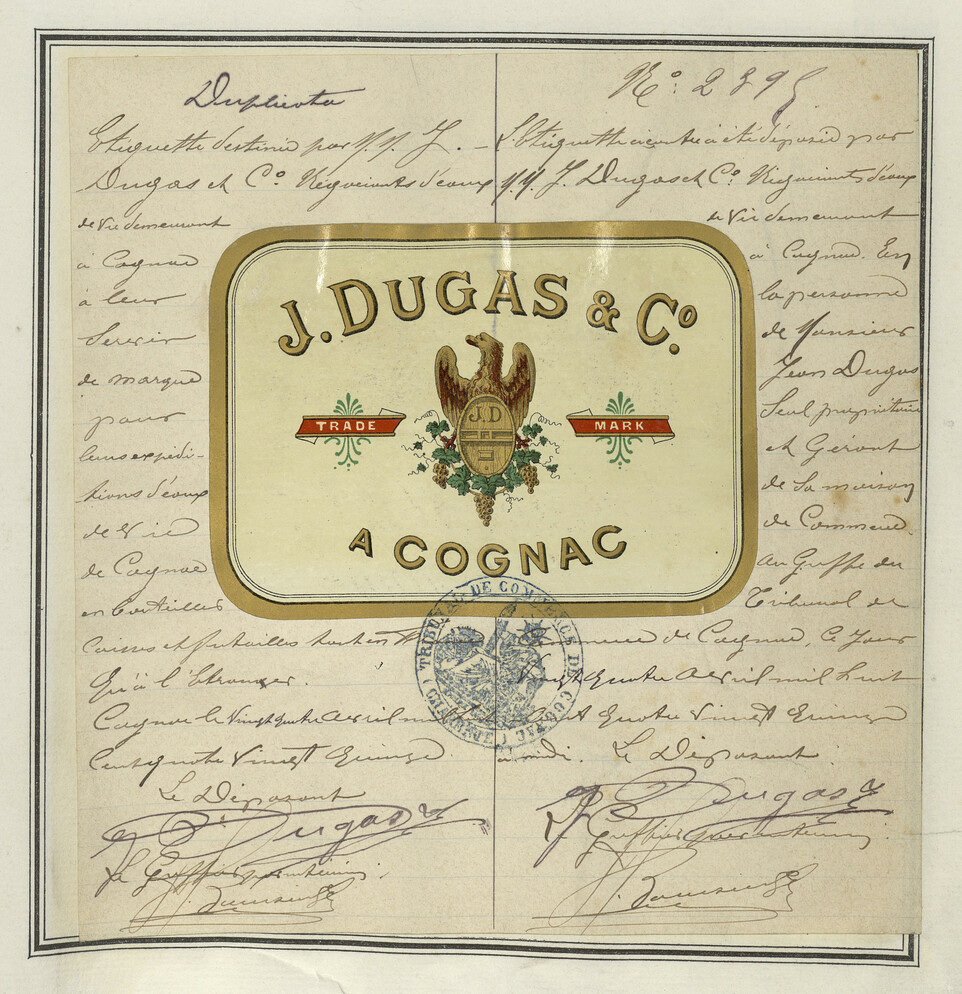 Duplicata
Etiquette destinée par M.M. J.
Dugas et Cº. Négociants d'eaux
de vie demeurant
à Cognac
à leur
servir
de marque
pour
leurs expédi-
tions d'eaux
de vie
de Cognac
en bouteilles
Caisses et futailles tant en
qu'à l'Etranger.
Cognac le vingt quatre avril mil huit
Cent quatre vingt quinze
Le Déposant
J. Dugas & Cº
Le Greffier
Nº: 2395
L'Etiquette ci contre a été déposée par
M.M. J. Dugas et Cº. Négociants d'eaux
de vie demeurant
à Cognac. En
la personne
de Monsieur
Jean Dugas
Seul propriétaire
et Gérant
de la maison
de Commerce
au Greffe du
Tribunal de
Commerce de Cognac, ce jour
vingt quatre avril mil huit
cent quatre vingt quinze
à midi. Le Déposant.
J. Dugas & Cº
Le Greffier
J. DUGAS & Cº.
J.D
TRADE MARK
A COGNAC
TRIBUNAL DE COMMERCE DE COGNAC (CHARENTE)